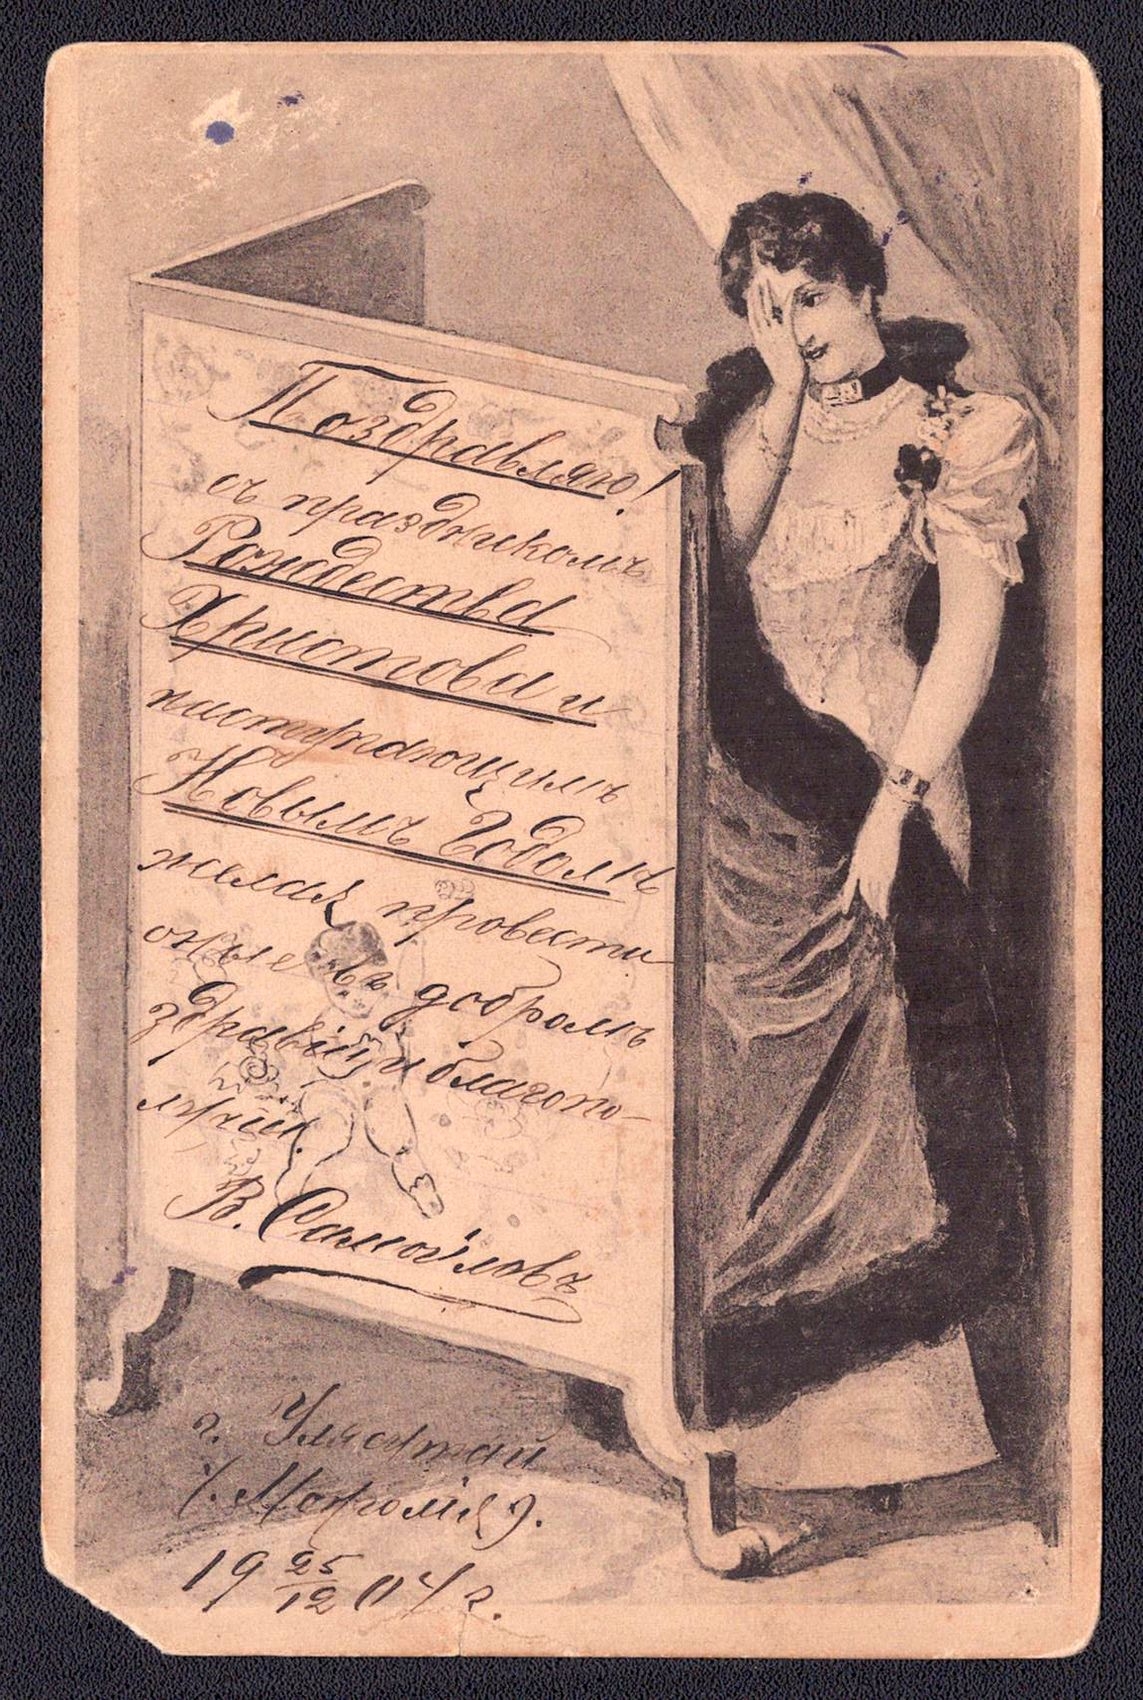 Поздравляю!
съ праздникомъ
Рождества
Христова и
наступающимъ
Новымъ Годомъ
желая провести
оные въ добромъ
здравіи и благопо-
лучіи.
В. Самойловъ
г. Улясутай
(Монголія).
19 25/12 04 г.